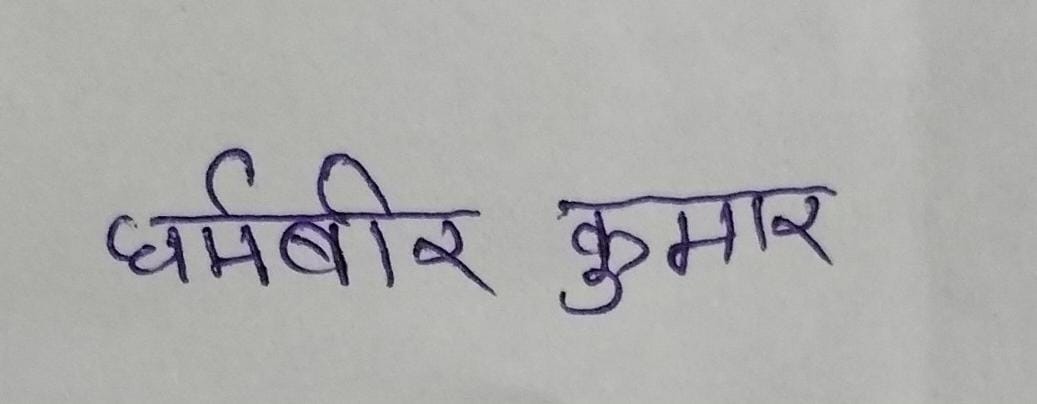 धर्मबीर कुमार